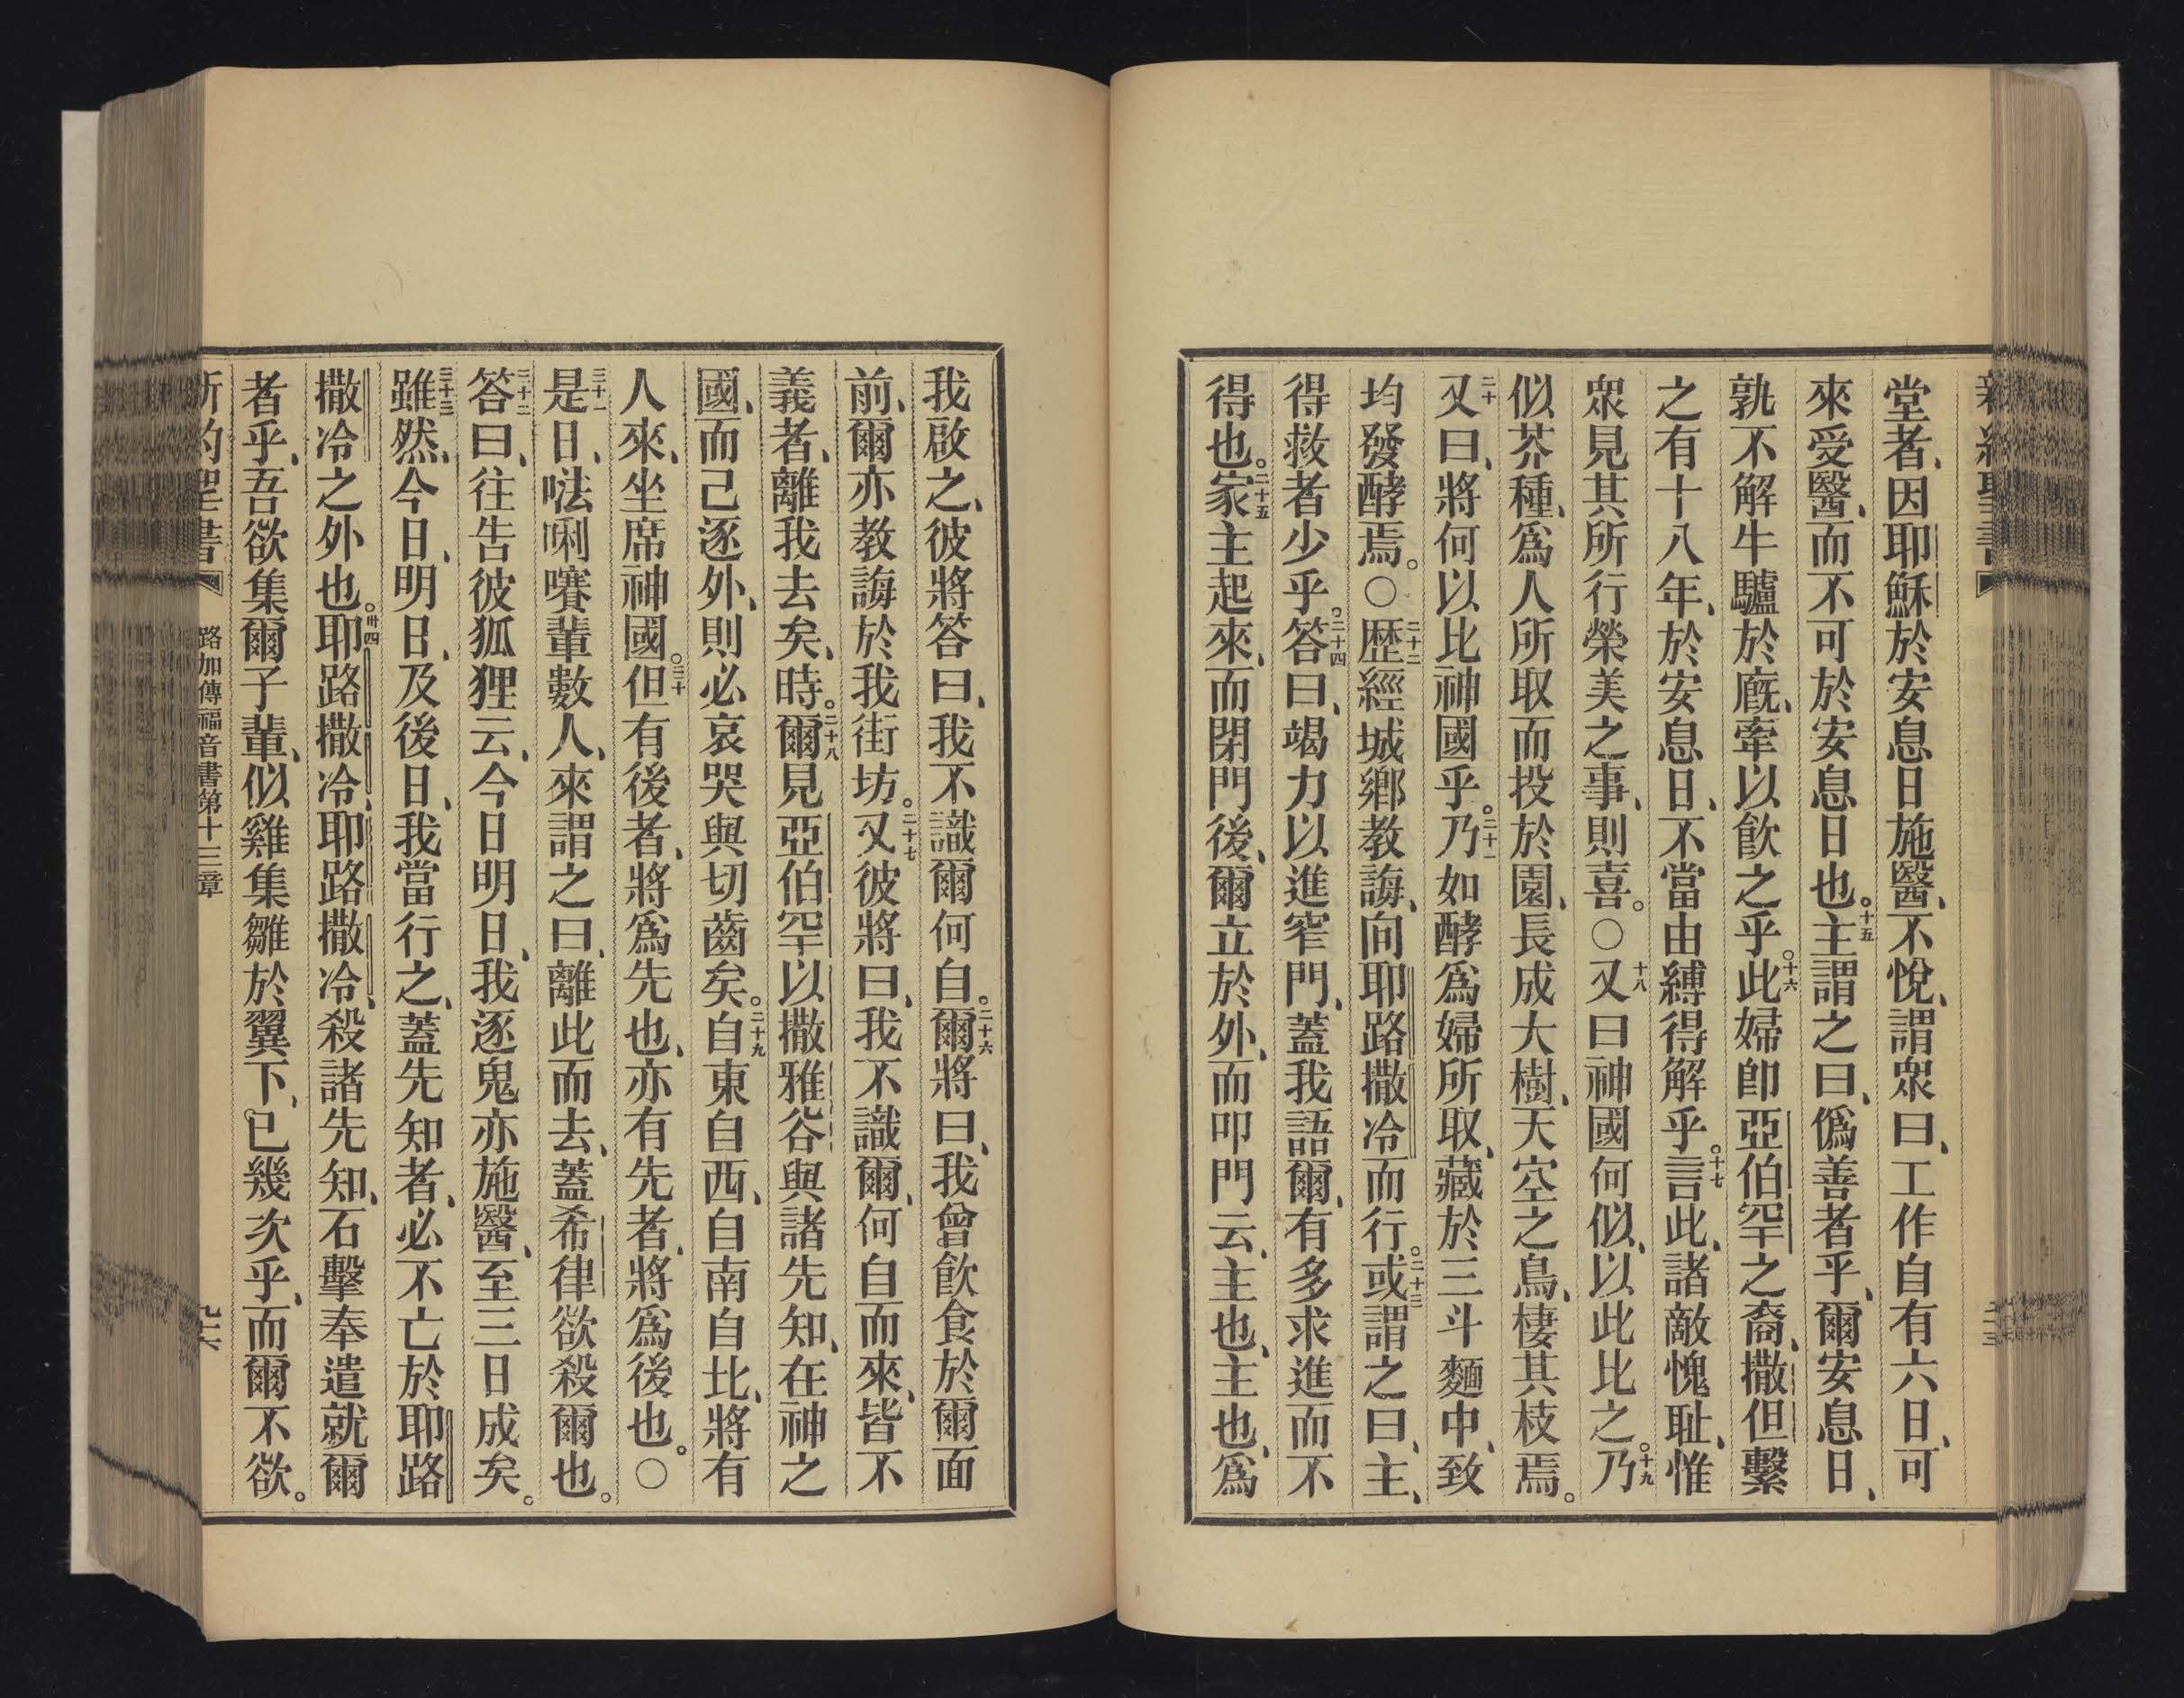 堂者、因耶穌於安息日施醫、不悅、謂眾曰、工作自有六日、可
來受醫、而不可於安息日也。十五主謂之曰、僞善者乎、爾安息日、
孰不解牛驢於廐、牽以飮之乎。十六此婦卽亞伯罕之裔、撒但繫
之有十八年、於安息日、不當由縛得解乎。十七言此、諸敵愧耻、惟
眾見其所行榮美之事、則喜。○十八又曰神國何似、以此比之。十九乃
似芥種、爲人所取而投於園、長成大樹、天空之鳥、棲其枝焉。
二十又曰、將何以比神國乎。二十一乃如酵爲婦所取、藏於三斗麵中、致
均發酵焉。○二十二歷經城鄉教誨、向耶路撒冷而行。二十三或謂之曰、主、
得救者少乎。二十四答曰、竭力以進窄門、蓋我語爾、有多求進而不
得也。二十五家主起來、而閉門後、爾立於外、而叩門云、主也、主也、爲
我啟之、彼將答曰、我不識爾何自。二十六爾將曰、我曾飮食於爾面
前、爾亦教誨於我街坊。二十七又彼將曰、我不識爾、何自而來、皆不
義者、離我去矣、時。二十八爾見亞伯罕以撒雅谷與諸先知、在神之
國、而己逐外、則必哀哭與切齒矣。二十九自東自西、自南自北、將有
人來、坐席神國。三十但有後者、將爲先也、亦有先者、將爲後也。○
三十一是日、𠵽唎嚽輩數人、來謂之曰、離此而去、蓋希律欲殺爾也。
三十二答曰、往告彼狐狸云、今日明日、我逐鬼亦施醫、至三日成矣。
三十三雖然、今日、明日、及後日、我當行之、蓋先知者、必不亡於耶路
撒冷之外也。卅四耶路撒冷、耶路撒冷、殺諸先知、石擊奉遣就爾
者乎、吾欲集爾子輩、似雞集雛於翼下、已幾次乎、而爾不欲。
路加傳福音書第十三章